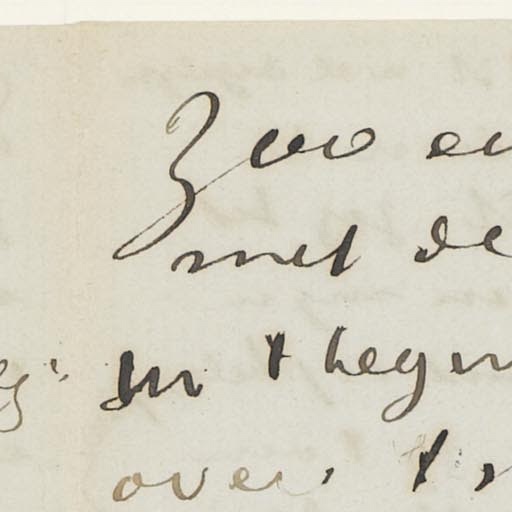 Zoo en
met de
in t begin
over, t